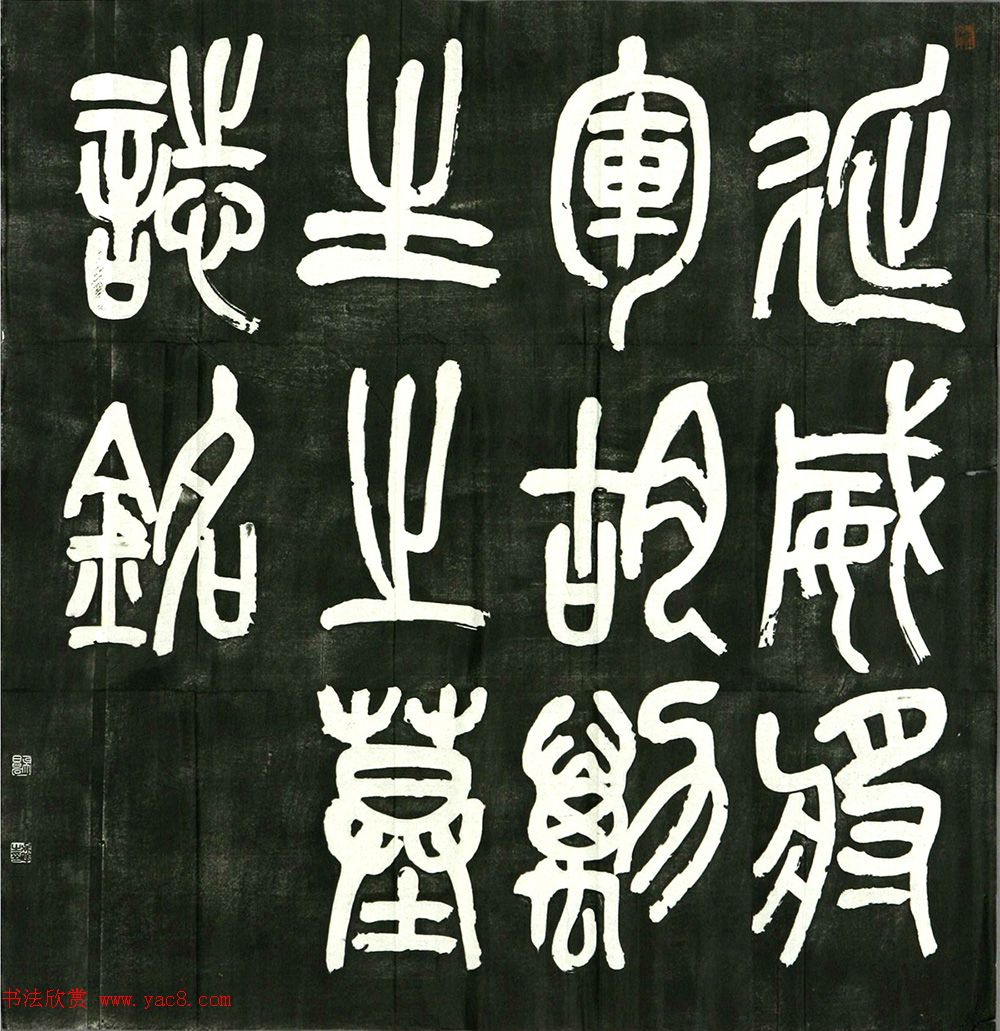 延威將
軍胡勱
生之墓
誌銘
书法欣赏 www.yac8.com